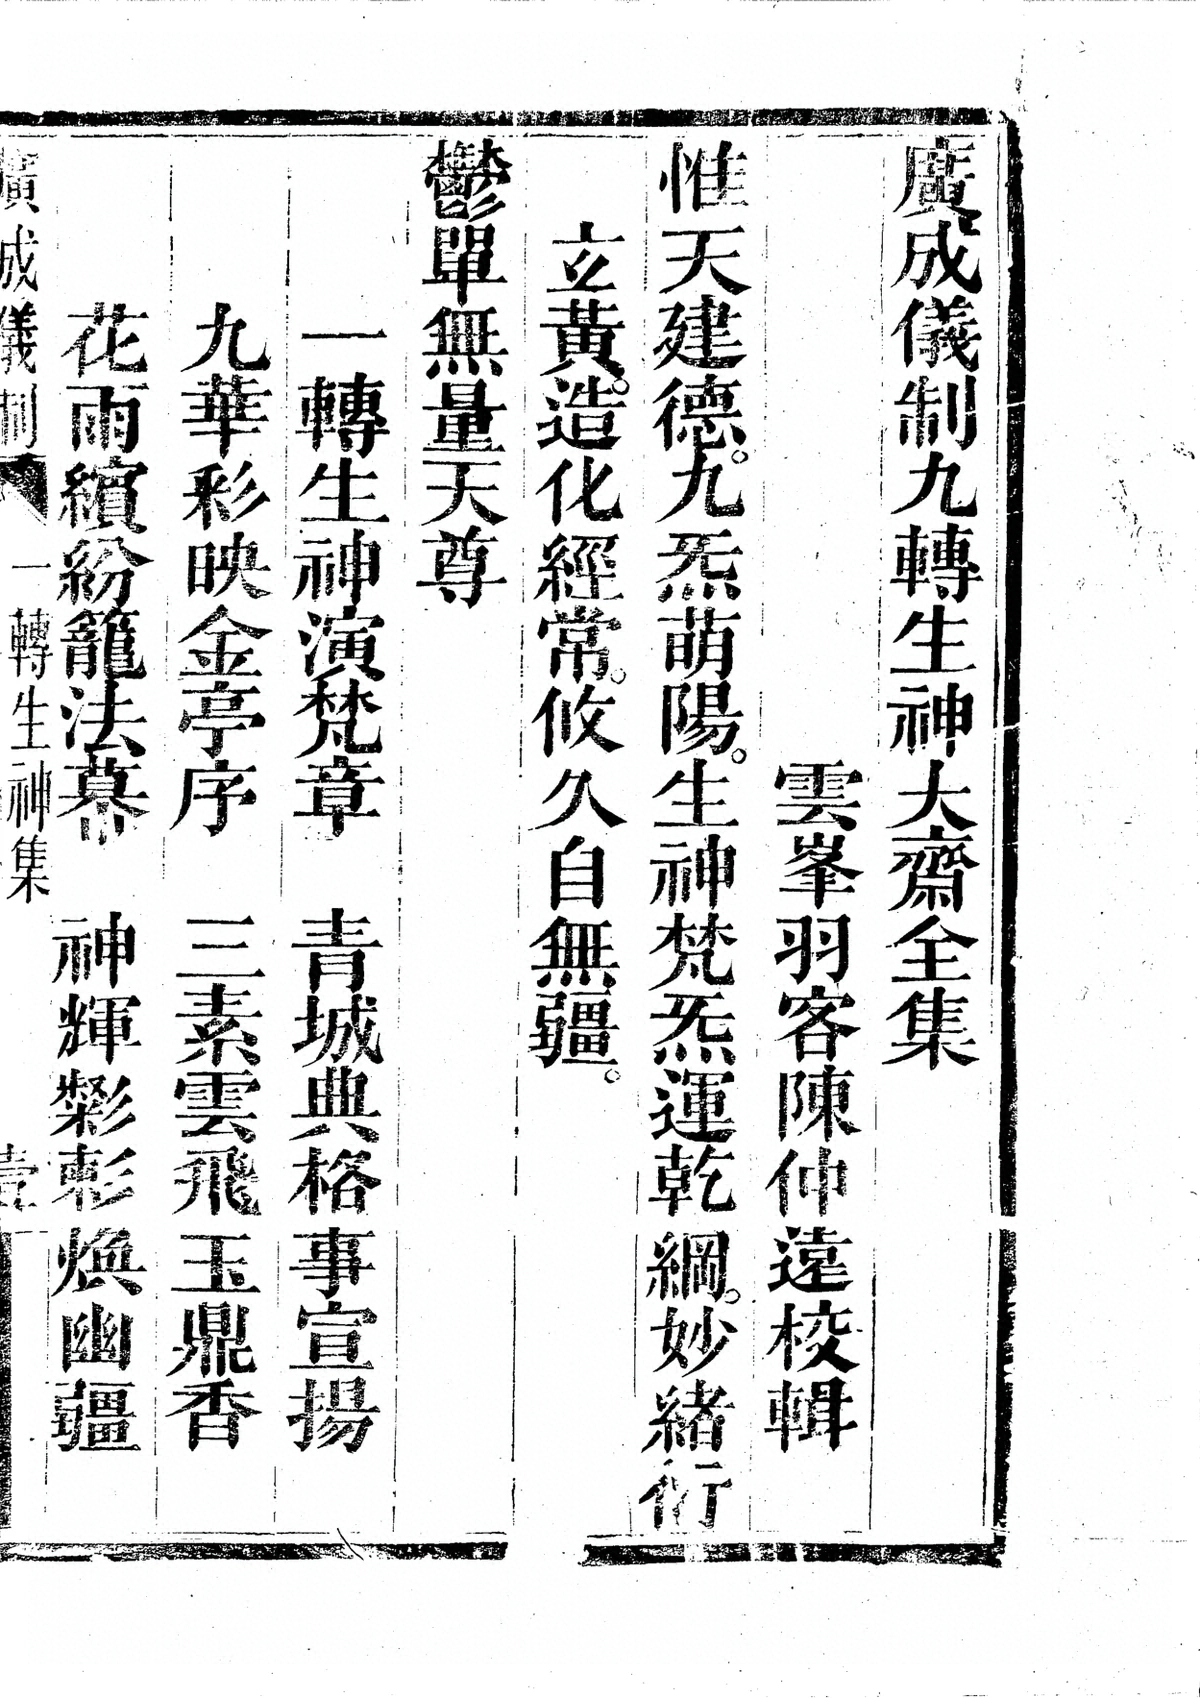 廣成儀制九轉生神大齋全集
雲峯羽客陳仲遠校輯
惟天建德。九炁萌陽。生神梵炁運乾綱。妙緒衍
立黃。造化經常。攸久自無疆。
鬱單無量天尊
一轉生神演梵章　青城典格事宣揚
九華彩映金亭序　三素雲飛玉鼎香
花雨繽紛籠法幕　神輝彩煥幽疆
廣成儀制　一轉生神集　壹